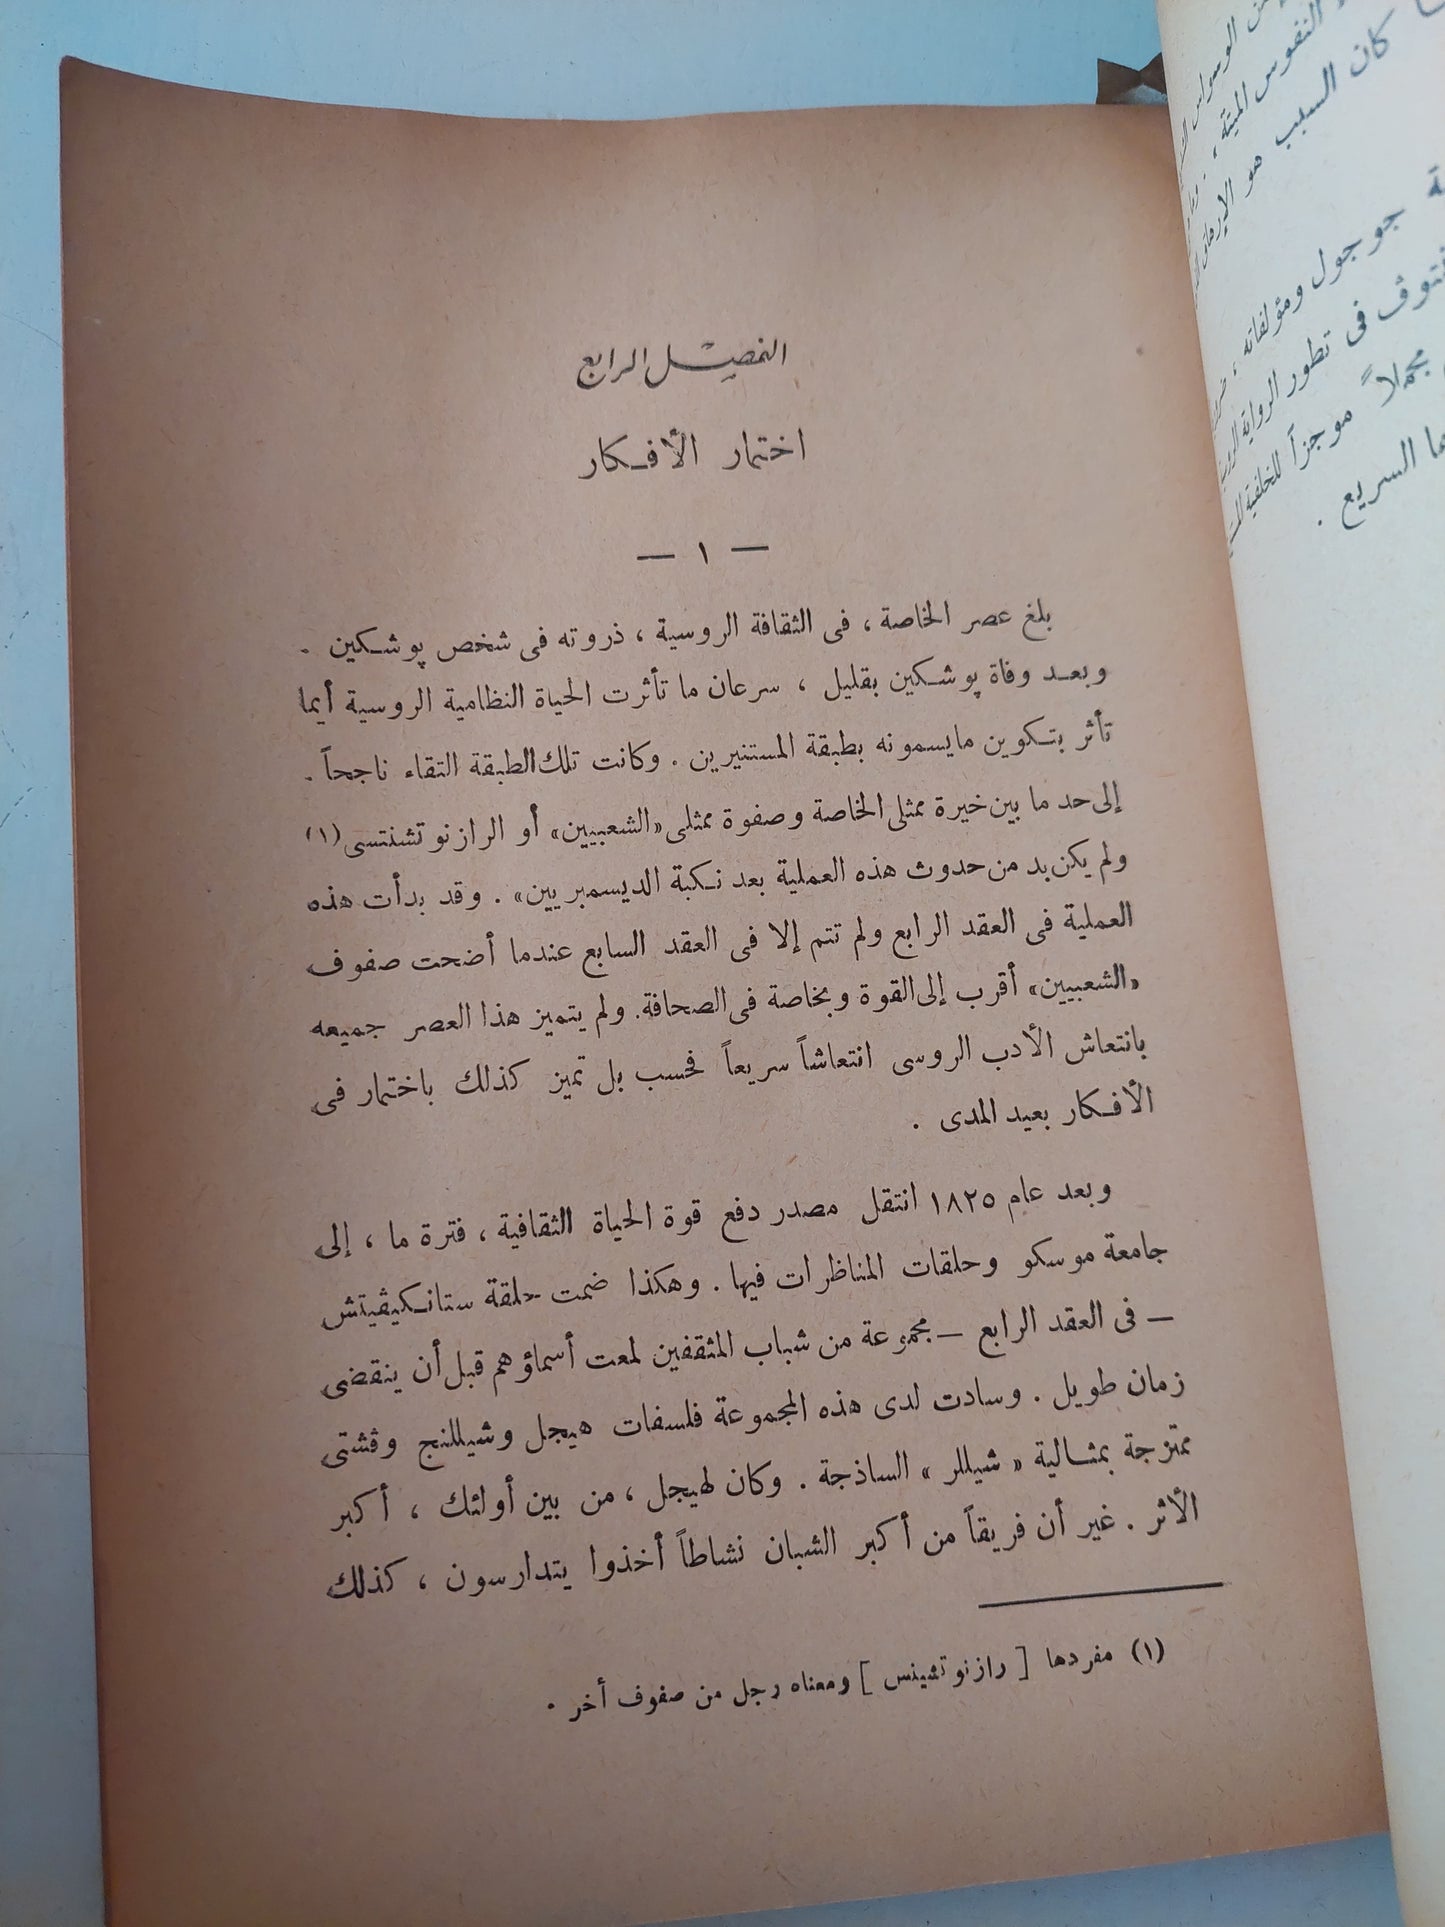 الفصل الرابع
اختمار الأفكار
— ١ —
بلغ عصر الخاصة ، فى الثقافة الروسية ، ذروته فى شخص پوشكين .
وبعد وفاة پوشكين بقليل ، سرعان ما تأثرت الحياة النظامية الروسية أيما
تأثر بتكوين مايسمونه بطبقة المستنيرين . وكانت تلك الطبقة التقاء ناجحاً .
إلى حد ما بين خيرة ممثلى الخاصة وصفوة ممثلى «الشعبيين» أو الرازنوتشنتسى (١)
ولم يكن بد من حدوث هذه العملية بعد نكبة الديسمبريين» . وقد بدأت هذه
العملية فى العقد الرابع ولم تتم إلا فى العقد السابع عندما أضحت صفوف
«الشعبيين» أقرب إلى القوة وبخاصة فى الصحافة. ولم يتميز هذا العصر جميعه
بانتعاش الأدب الروسى انتعاشاً سريعاً فحسب بل تميز كذلك باختمار فى
الأفكار بعيد المدى .
وبعد عام ١٨٢٥ انتقل مصدر دفع قوة الحياة الثقافية ، فترة ما ، إلى
جامعة موسكو وحلقات المناظرات فيها . وهكذا ضمت حلقة ستانكيڤيتش
— فى العقد الرابع — مجموعة من شباب المثقفين لمعت أسماؤهم قبل أن ينقضى
زمان طويل . وسادت لدى هذه المجموعة فلسفات هيجل وشيللنج وڤشتى
ممتزجة بمثالية « شيللر » الساذجة . وكان لهيجل ، من بين أولئك ، أكبر
الأثر . غير أن فريقاً من أكبر الشبان نشاطاً أخذوا يتدارسون ، كذلك
(١) مفردها [ رازنوتشينس ] ومعناه رجل من صفوف أخر .
النفوس الميتة ،
كان السبب هو
جوجول ومؤلفاته ،
فى تطور الرواية
مجملاً موجزاً للخلفية
السريع .